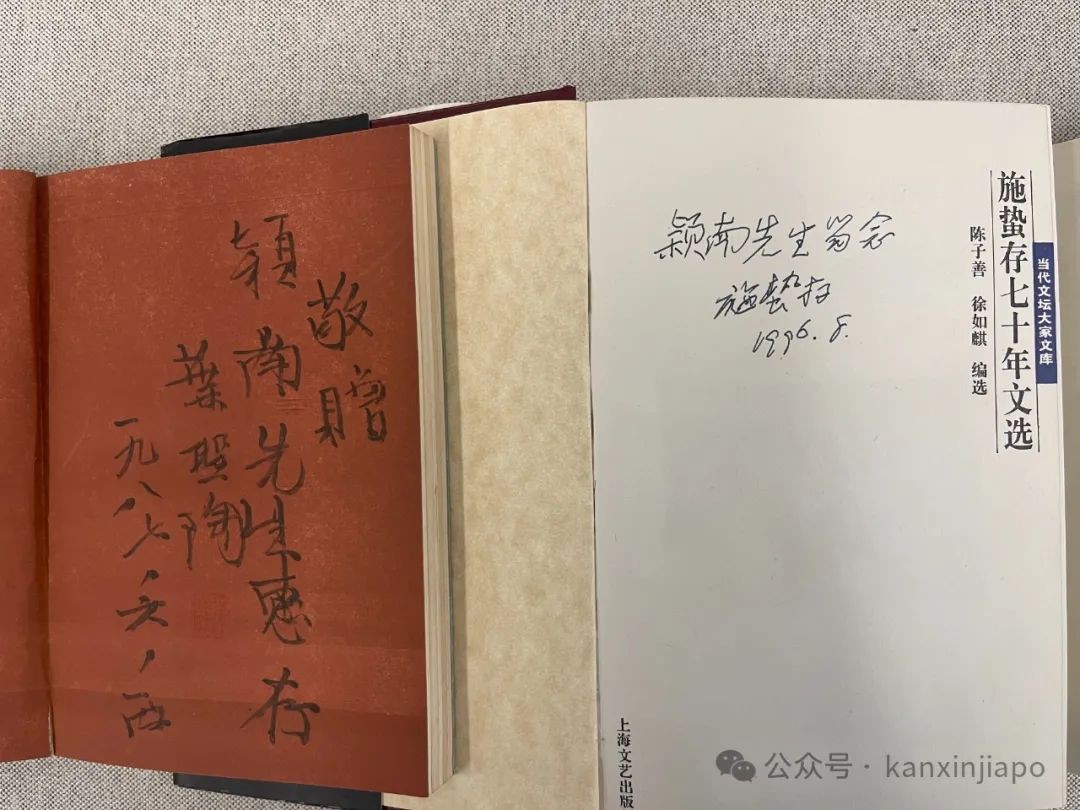 敬贈
穎南先生惠存
葉聖陶
一九八七、六、
颖南先生留念
施蛰存
1996.8.
施蛰存七十年文选
当代文坛大家文库
陈子善 徐如麒 编选
上海文艺出版
公众号 · kanxinjiapo